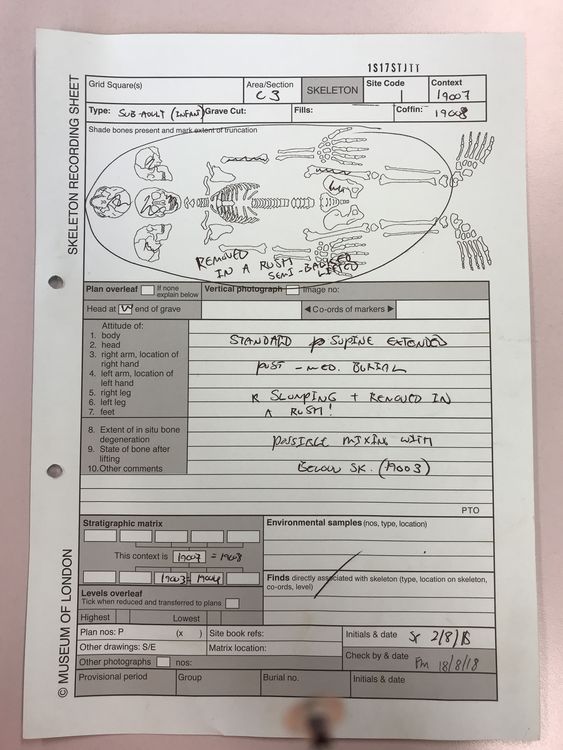 1S17STJTT
SKELETON RECORDING SHEET
Grid Square(s)
Area/Section
C3
SKELETON
Site Code
Context
19007
Type: SUB-ADULT (INFANT)
Grave Cut:
Fills:
Coffin: 19008
Shade bones present and mark extent of truncation
REMOVED
IN A RUSH
SEMI-BACKED
LIFTED
Plan overleaf
If none explain below
Vertical photograph
Image no:
Head at W end of grave
◄ Co-ords of markers ►
Attitude of:
1. body
2. head
3. right arm, location of right hand
4. left arm, location of left hand
5. right leg
6. left leg
7. feet
8. Extent of in situ bone degeneration
9. State of bone after lifting
10. Other comments
STANDARD SUPINE EXTENDED
POST-MED. BURIAL
SLUMPING + REMOVED IN
A RUSH!
POSSIBLE MIXING WITH
BELOW SK. (19003)
PTO
Stratigraphic matrix
This context is 19007 = 19008
19003 = 19004
Environmental samples (nos, type, location)
Finds directly associated with skeleton (type, location on skeleton, co-ords, level)
Levels overleaf
Tick when reduced and transferred to plans
Highest
Lowest
Plan nos: P (x )
Site book refs:
Initials & date
2/8/18
Other drawings: S/E
Matrix location:
Check by & date
PM 18/8/18
Other photographs
nos:
Provisional period
Group
Burial no.
Initials & date
© MUSEUM OF LONDON